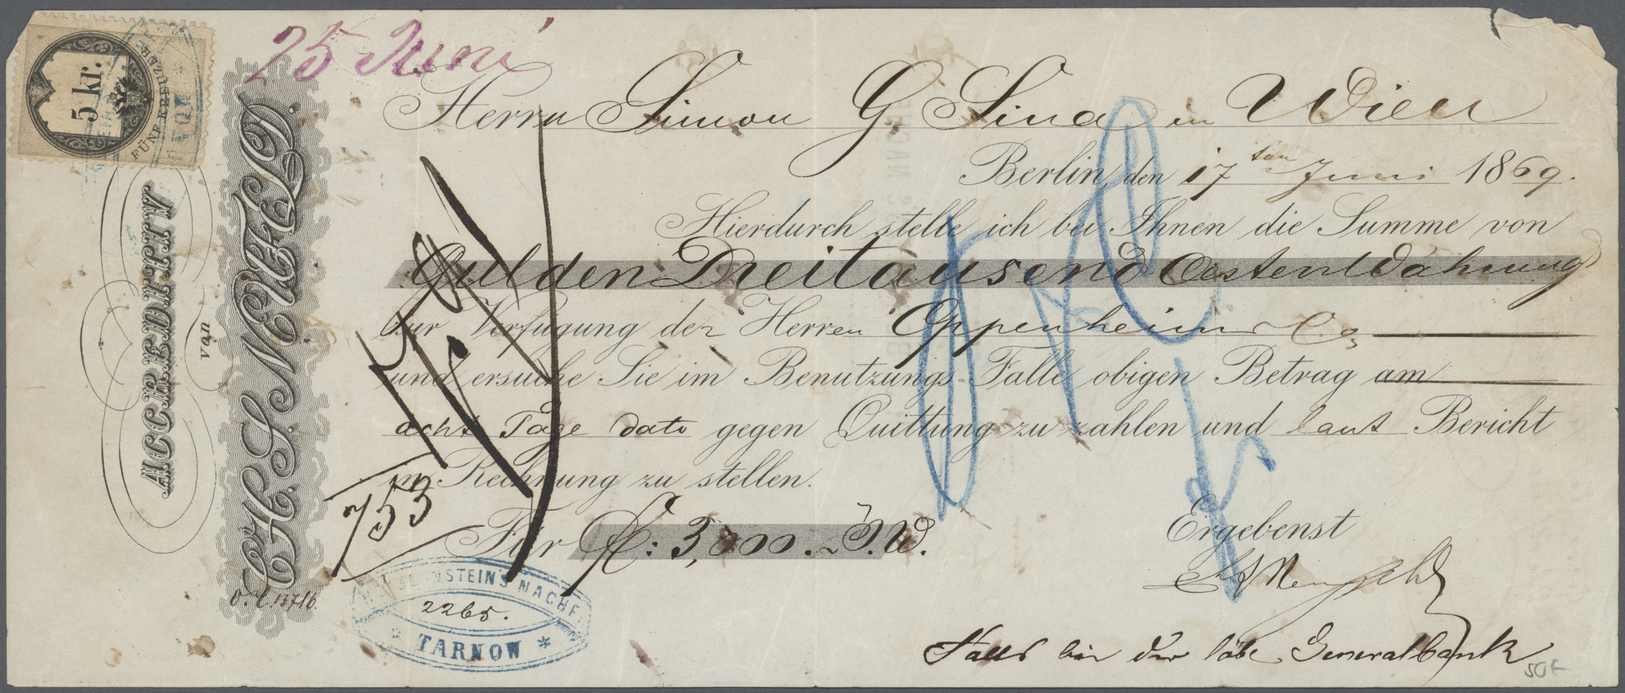 25 Juni
5 kr.
FÜNF KREUZER
ACCREDITIV
von
CH. S. NEUFELD.
Herrn Simon G. Sina in Wien
Berlin, den 17ten Juni 1869.
Hierdurch stelle ich bei Ihnen die Summe von
Gulden Dreitausend Oesterr Währung
zur Verfügung der Herren Oppenheim & Co
und ersuche Sie im Benutzungs-Falle obigen Betrag am
acht Tage dato gegen Quittung zu zahlen und laut Bericht
in Rechnung zu stellen.
753
Für f: 3,000. ö.W.
Ergebenst
2265.
TARNOW
Falls bei der löbl. Generalbank
50t